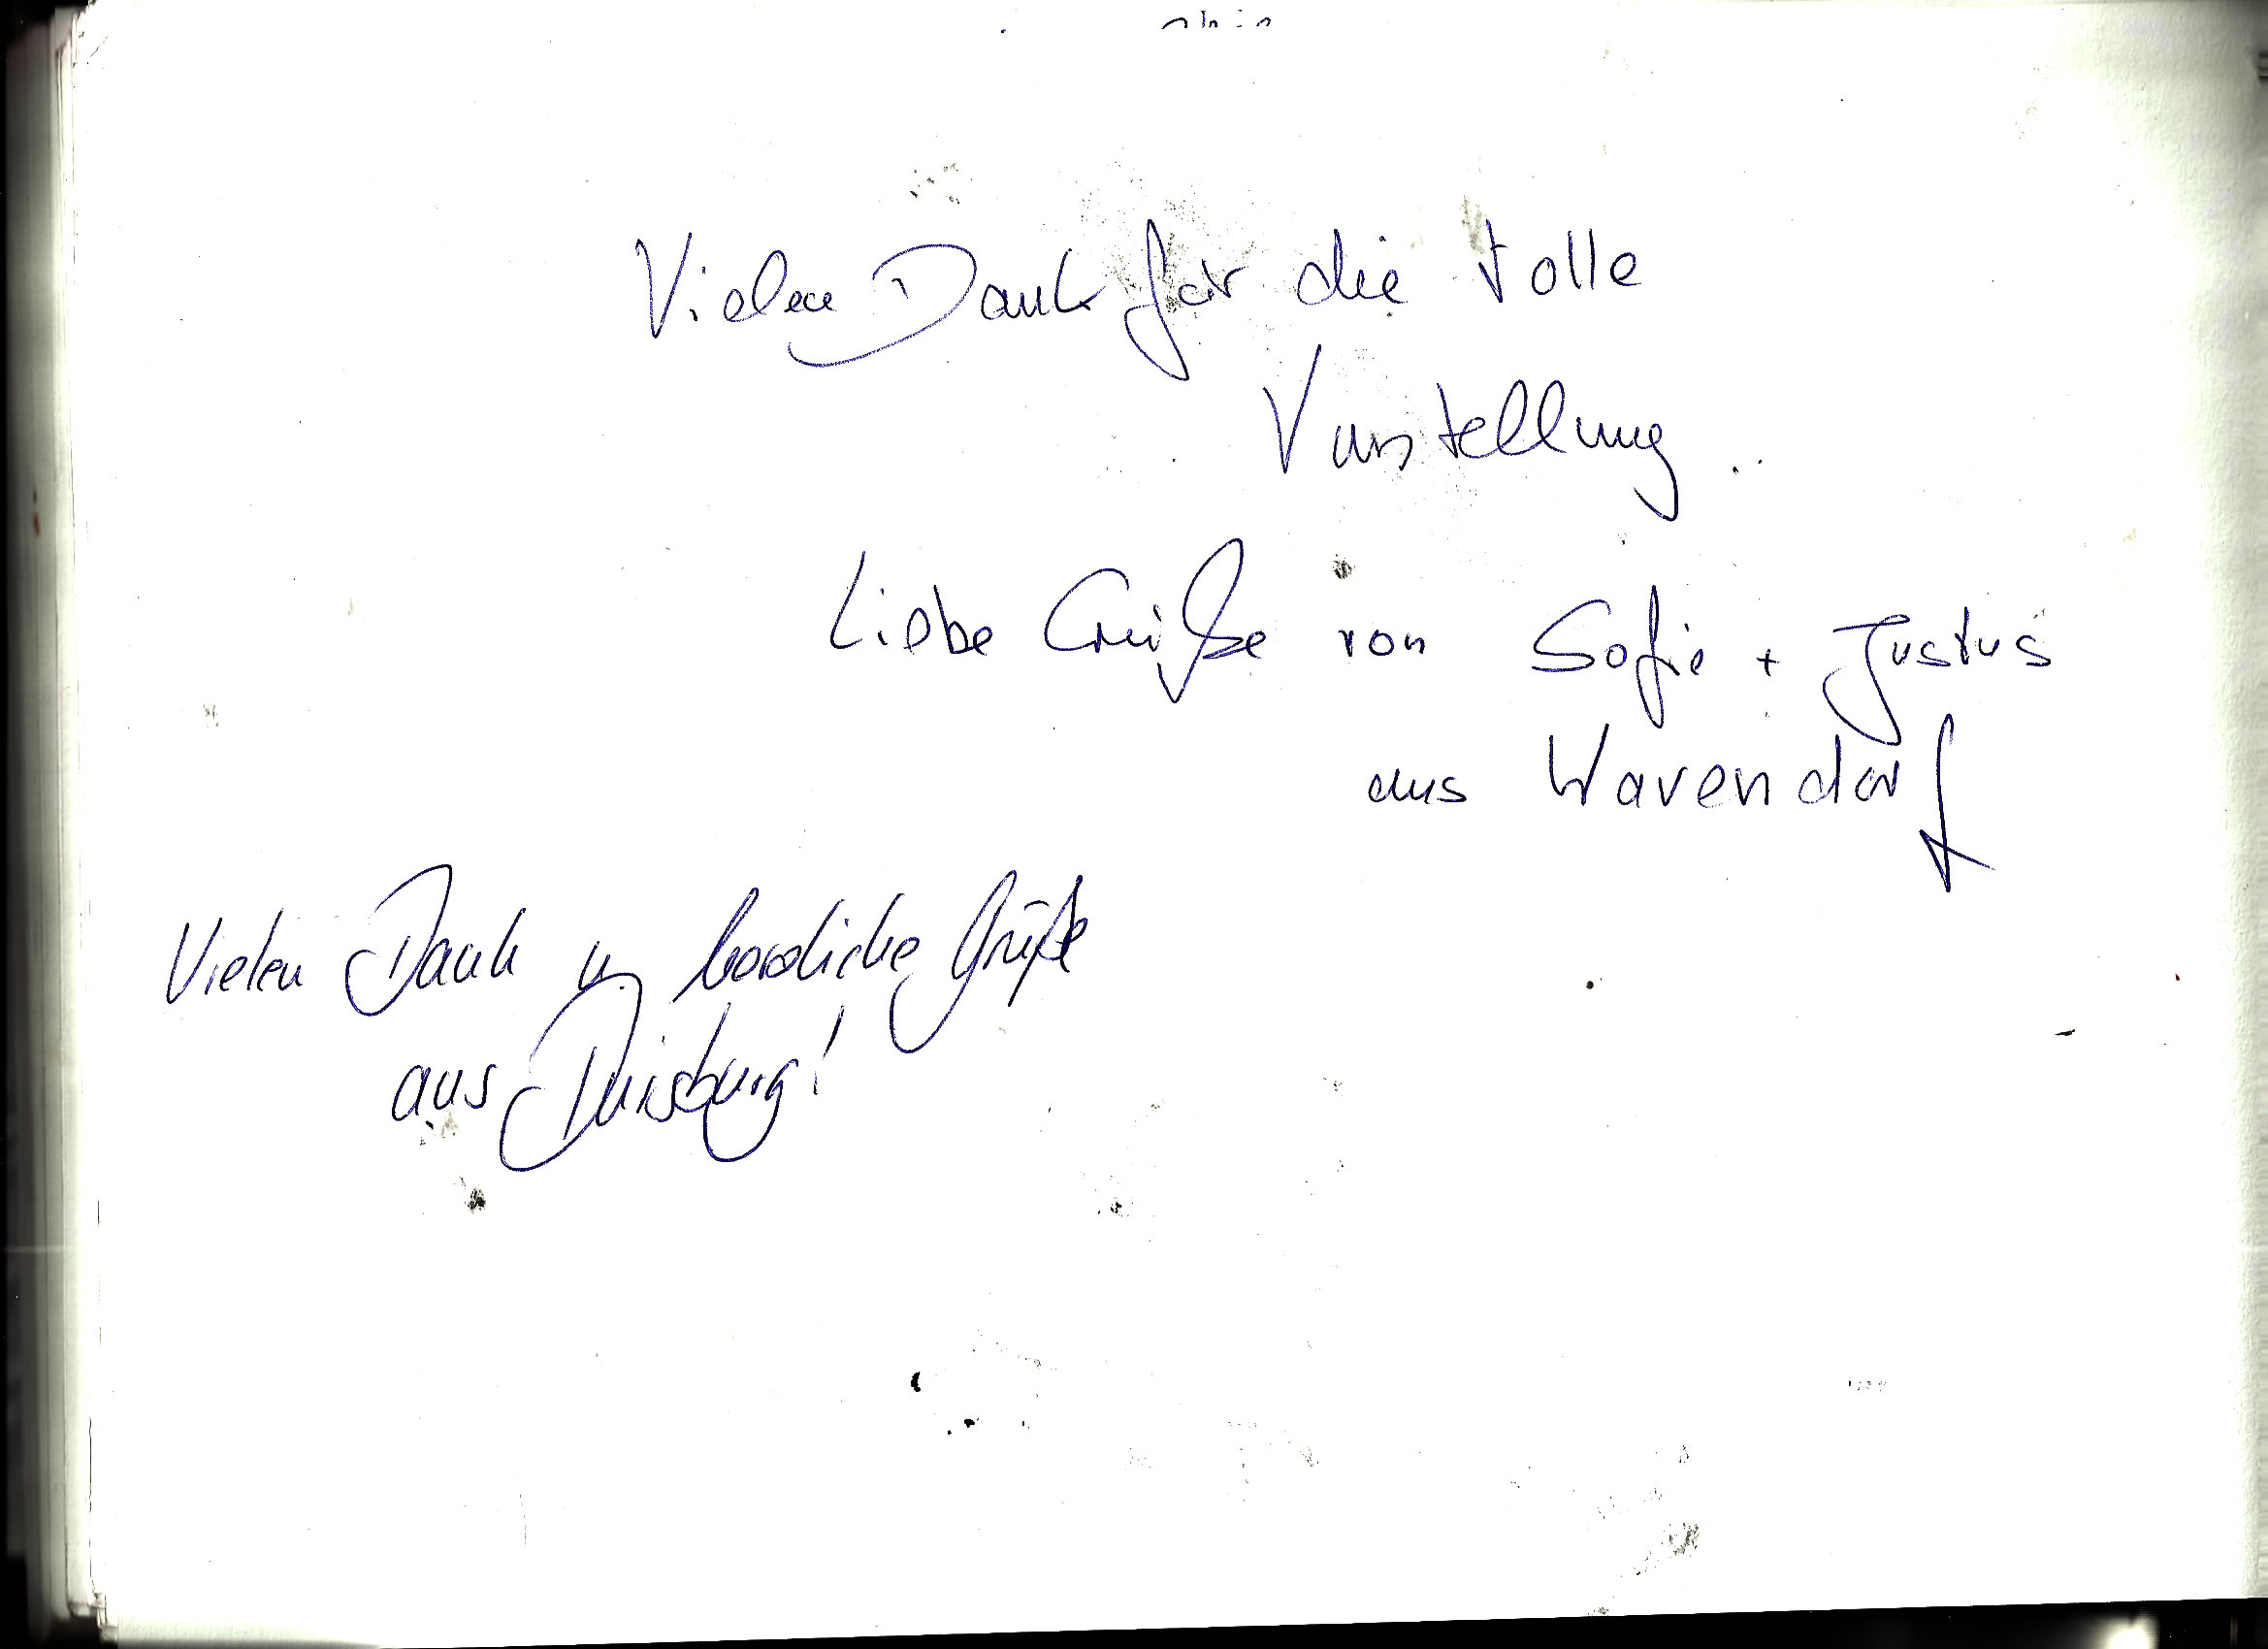 Vielen Dank für die tolle
Vorstellung..
Liebe Grüße von Sofie + Justus
aus Warendorf
Vielen Dank u. herzliche Grüße
aus Duisburg!